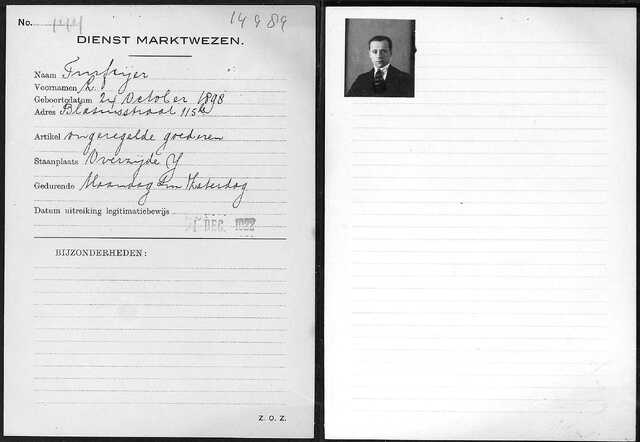 No. 144
14989
DIENST MARKTWEZEN.
Naam Turfrijer
Voornamen K.
Geboortedatum 24 October 1898
Adres Blasiusstraat 115
Artikel ongeregelde goederen
Staanplaats Overzijde Y
Gedurende Maandag t/m Zaterdag
Datum uitreiking legitimatiebewijs DEC. 1922
BIJZONDERHEDEN:
Z. O. Z.